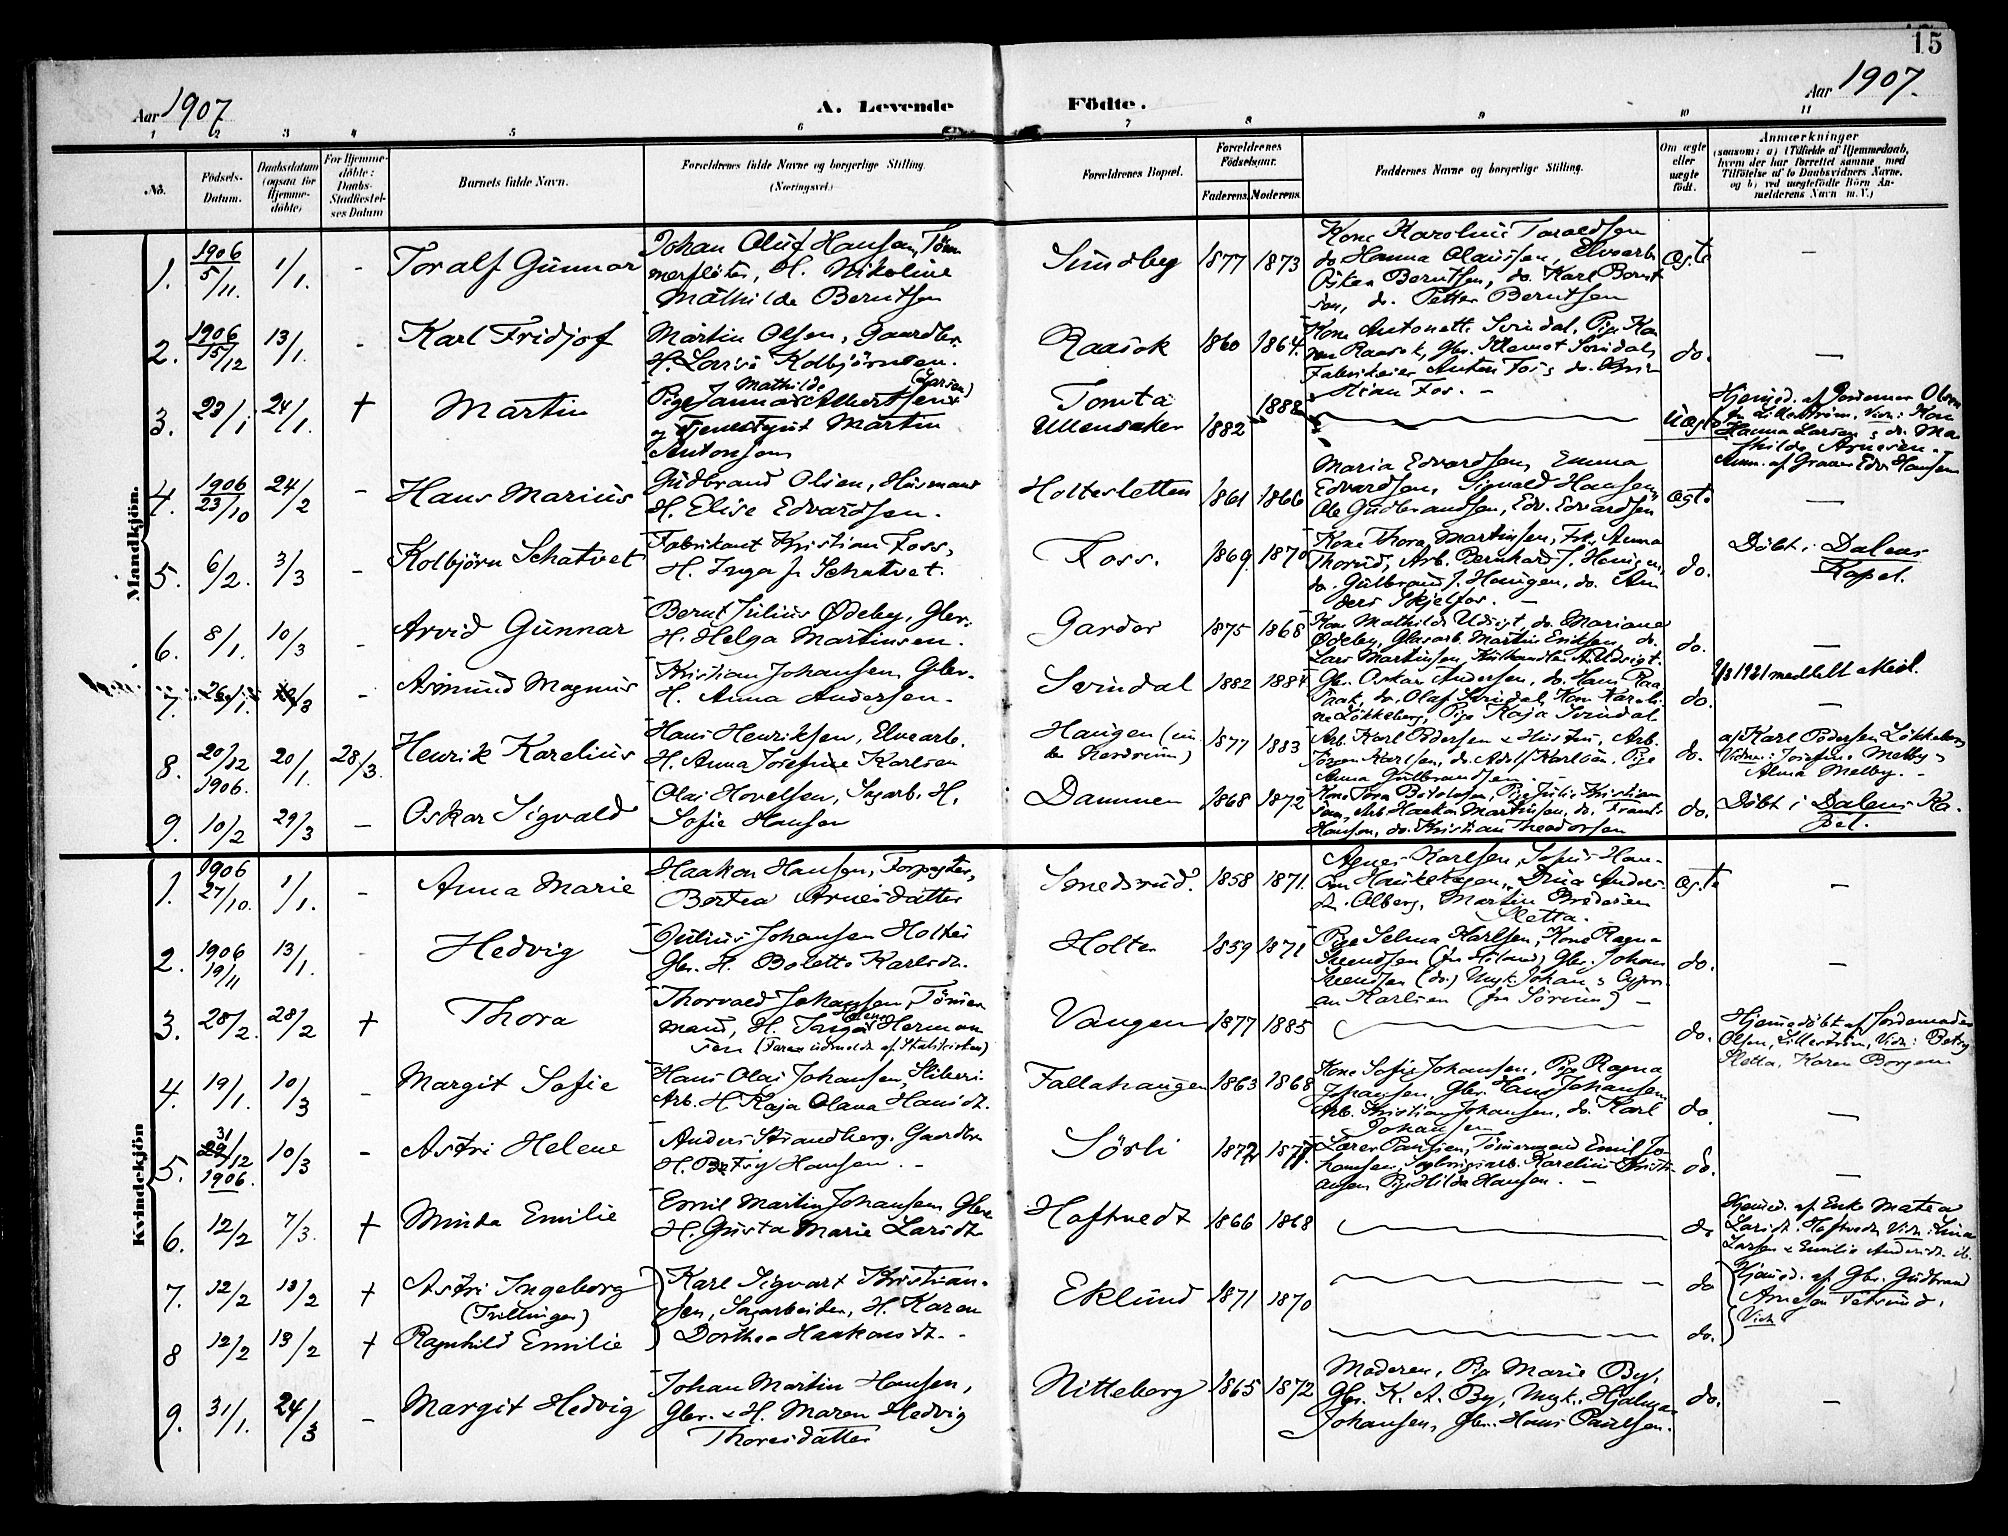 15
Aar 1907
A. Levende Födte.
Aar 1907.
1 2 3 4 5 6 7 8 9 10 11
No.
Födsels-
Datum.
Daabsdatum
(ogsaa for
Hjemme-
döbte)
For Hjemme-
döbte:
Daabs-
Stadfæstel-
ses Datum
Barnets fulde Navn.
Forældrenes fulde Navne og borgerlige Stilling.
(Næringsvei.)
Forældrenes Bopæl.
Forældrenes
Födselsaar.
Faderens.
Moderens.
Faddernes Navne og borgerlige Stilling.
Om ægte
eller
uægte
födt.
Anmærkninger
(saasom: a) i Tilfælde af Hjemmedaab,
hvem der har forrettet samme, med
Tilföielse af to Daabsvidners Navne,
og b) ved uægtefödte Börn An-
melderens Navn m. V.)
Mandkjön.
1. 1906 5/11. 1/1. - Toralf Gunnar
Johan Oluf Hansen, Töm
merflöter, H. Nikoline
Mathilde Berntsen
Sundbey 1877 1873
Kone Karoline Taraldsen
do Hanna Olaussen, Elvearb
Berntsen, do. Karl Bernt
sen, do. Petter Berntsen
ægte -
2. 1906 15/12 13/1. - Karl Fridjof
Martin Olsen, Gaardbr.
H. Lovise Kolbjörnsen.
Raasok 1860 1864.
Kone Antonette Svindal, Pige
Raasok, Gbr. Klemet Svindal,
Fabrikeier Anton Fos, do. Kris
stian Fos. -
do. -
3. 23/1 24/1. + Martin
Pige Janna Mathilde Albertsen (Larsen)
og Tjenestgut Martin
Antonsen
Tomta
Ullensaker 1882 1888
Uægte
Hjemmed. af Jordemor Olsen
fra Lilleström. Vidn: Kone
Hanna Larsen & do. Ma
thilde Arnesen.
Anm. af Graver Edv. Hansen
4. 1906 23/10 24/2 - Hans Marius
Gudbrand Olsen, Husmand
H. Elise Edvardsen.
Holtesletten 1861 1866
Maria Edvardsen, Emma
Edvardsen, Sigvald Hansen,
Ole Gudbrandsen, Edv. Edvardsen
ægte -
5. 6/2. 3/3 - Kolbjörn Schatvet
Fabrikant Kristian Foss,
H. Inga J. Schatvet.
Foss. 1869 1870
Kone Thora Martinsen, Frk. Anna
Thorud, Arb. Bernhard J. Henigen,
do. Gulbrand J. Henigen, do. An
ders Skjelfos. -
do.
Döbt i Dalens
Kapel.
6. 8/1. 10/3 - Arvid Gunnar
Bernt Julius Ödeby, Gbr.
H. Helga Martinsen.
Garder 1875 1868
Kone Mathilde Udsigt, do. Mariane
Ödeby, Glasarb. Martin Eriksen, do.
Lars Martinsen, Kulhandler A. Udsigt.
do. -
7. 26/1. /3 - Asmund Magnus
Kristian Johansen, Gbr.
H. Anna Andersen.
Svindal 1882 1884
Gbr. Oskar Andersen, do. Hans Raa
saak, do. Olaf Svindal, Kone Karoli
ne Lökkeberg, Pige Kaja Svindal
do.
1/3 1961 meddelt attest.
-
8. 20/12 1906. 20/1. 28/3. Henrik Karelius
Hans Henriksen, Elvearb.
H. Anna Josefine Karlsen
Haugen (un
der Nordrum) 1877 1883
Arb. Karl Pedersen & Hustru, Arb.
Jörgen Karlsen, do. Adolf Karlsen, Pige
Anna Gulbrandsen
do.
af Karl Pedersen Lökkeberg
Vidner: Josefine Melby &
Alma Melby. -
9. 10/2 29/3 - Oskar Sigvald
Olai Hovelsen, Sagarb. H.
Sofie Hansen
Dammen 1868 1872
Kone Thora Botolfsen, Pige Julie Kristian
sen, Arb. Haakon Martinsen, do. Frants
Hansen, do. Kristian Theodorsen
do.
Döbt i Dalens Ka-
pel.
Kvindekjön
1. 1906 27/10. 1/1. - Anna Marie
Haakon Hansen, Forpagter,
Bertea Arnesdatter
Smedsrud. 1858 1871.
Agnes Karlsen, Sofus Han-
sen Haukehagen, Drua Anders-
dt. Alberg, Martin Brodersen
Sletta.
ægte -
2. 1906 19/11 13/1. - Hedvig
Julius Johansen Holter
Gbr. H. Bolette Karlsdt.
Holter 1859 1871
Pige Selma Karlsen, Kone Ragna
Svendsen (fra Höland) Gbr. Johan
Svendsen (do.) Ungk. Johan & Cypri
an Karlsen (fra Sörum) -
do. -
3. 28/2. 28/2 + Thora
Thorvald Johansen, Tömmer
mand, H. Inga Helene Herman
sen (Faren udmeldt af Statskirken)
Vangen 1877 1885
do.
Hjemmedöbt af Jordemoder
Olsen, Lilleström, Vidn: Betsy
Sletta, Karen Borgen
4. 19/1. 10/3 - Margit Sofie
Hans Olai Johansen, Sliberi-
Arb. H. Kaja Olava Hansdt.
Fallahaugen 1863 1868
Kone Sofie Johansen, Pige Ragna
Johansen, Gbr. Hans Johansen,
Arb. Kristian Johansen, do. Karl
Johansen
do. -
5. 31/12 1906. 10/3 - Astri Helene
Anders Strandberg, Gaardbr.
H. Betsy Hansen. -
Sörli 1872 1877.
Lærer Paulsen, Tömmermand Emil Jo
hansen, Karelius Kristi
ansen Pige Hilda Hansen. -
do. -
6. 12/2 7/3. + Minda Emilie
Emil Martin Johansen, Gbr.
H. Gusta Marie Larsdt.
Haftvedt 1866 1868
do
Hjemmed. af Enke Matea
Larsdt. Haftvedt. Vidn: Lina
Larsen & Emilie Andersdt. ib.
7. 12/2 13/2 + Astri Ingeborg
(Tvillinger)
8 12/2 13/2 + Ragnhild Emilie
Karl Sigvart Kristian-
sen, Sagarbeider, H. Karen
Dorthea Haakonsdt. -
Eklund 1871 1870
do
do.
Hjemmed. af Gbr. Gudbrand
Arnesen
Vidn
9. 31/1. 24/3 - Margit Hedvig
Johan Martin Hansen,
Gbr. & H. Maren Hedvig
Thoresdatter
Nitteberg 1865 1872
Moderen, Pige Marie By,
Gbr. K. A. By, Ungk. Hjalmar
Johansen, Gbr. Hans Paulsen.
do. -